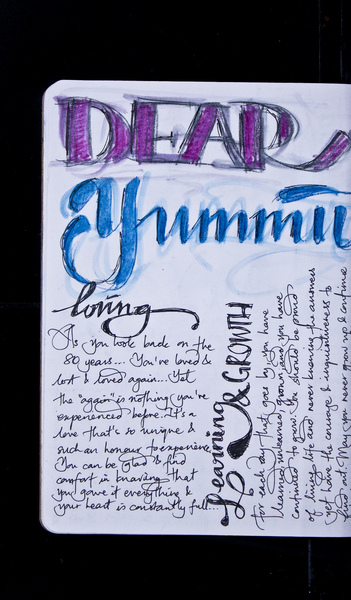 DEAR
Yummi
loving
As you look back on the
80 years... You've loved &
lost & loved again... Yet
the "again" is nothing you've
experienced before. It's a
love that's so unique &
such an honour to experience.
You can be glad & find
comfort in knowing that
you gave it everything &
your heart is constantly full...
Learning & GROWTH
for each day that goes by you have
learned, unlearned, grown and you have
continued to grow. You should be proud
of living life and never knowing the answers
yet have the courage & inquisitiveness to
find out. May you never grow up & continue